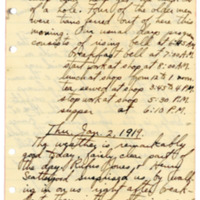 of a hole. Four of the older men
were transferred out of here this
morning. Our usual days program
consists of rising bell at 6:45 A.M.
breakfast bell
start work at shop at 8:00 A.M.
lunch at shop from 12 to 1 noon
tea served at shop 3:45 to 4 P.M.
stop work at shop 5:30 P.M.
supper at 6:15 P.M.
Thu. Jan. 2, 1919.
The weather is remarkably
good today, fairly clear part of
the day. Rufus Jones & Henry
Scattergood surprised us by walk-
ing in on us right after break-